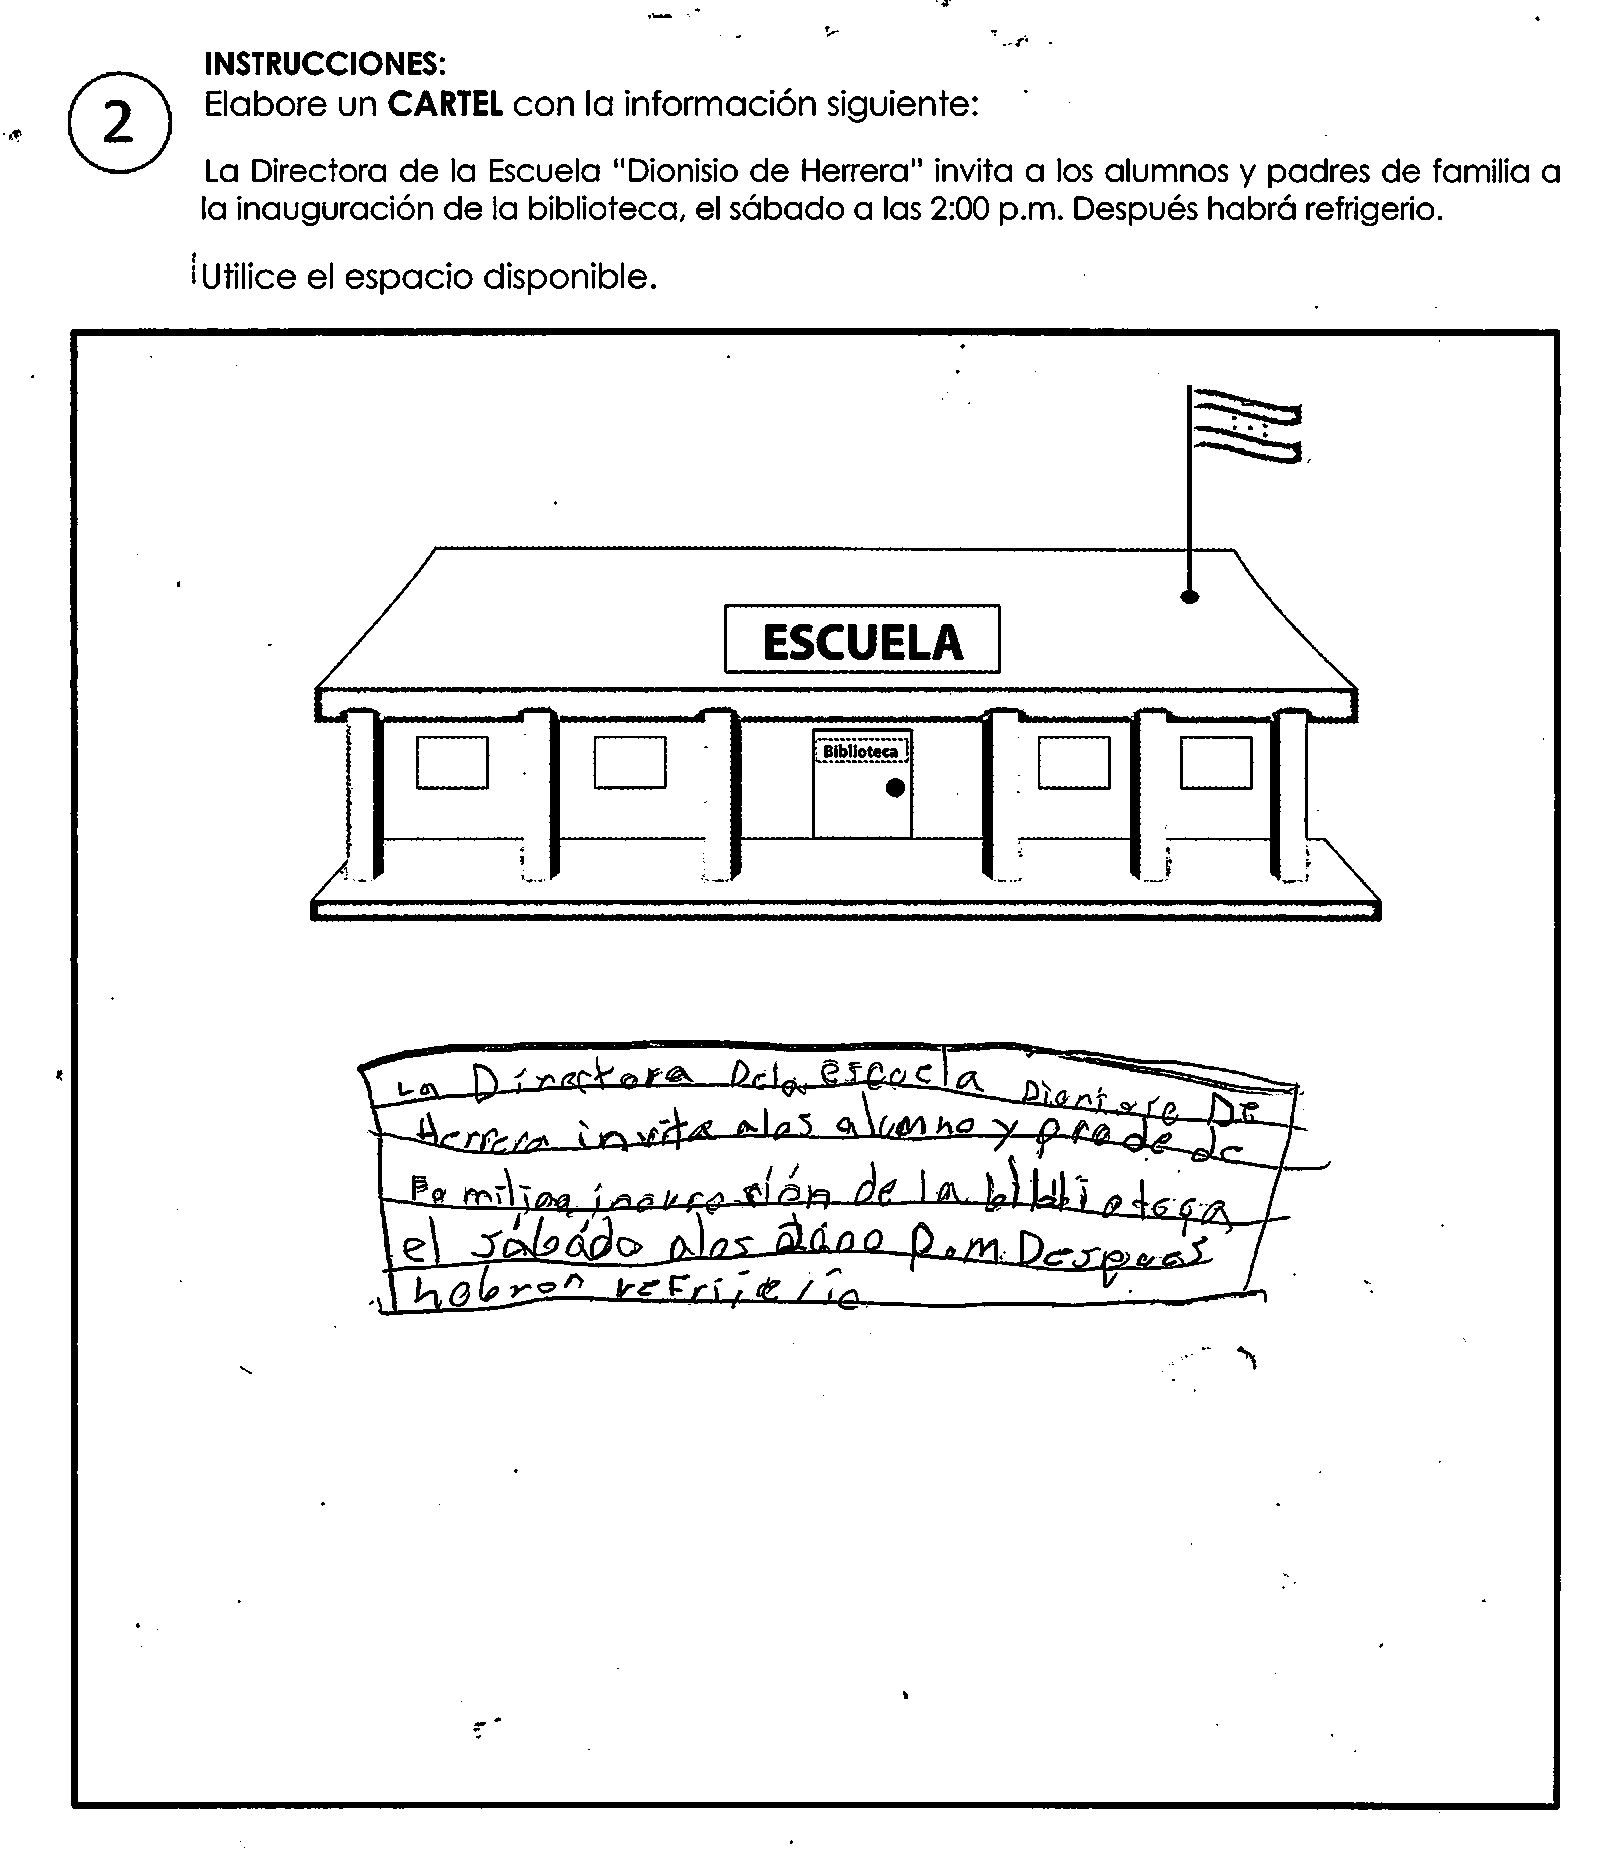 INSTRUCCIONES:
2
Elabore un CARTEL con la información siguiente:
La Directora de la Escuela "Dionisio de Herrera" invita a los alumnos y padres de familia a
la inauguración de la biblioteca, el sábado a las 2:00 p.m. Después habrá refrigerio.
Utilice el espacio disponible.
ESCUELA
Biblioteca
La Directora Dela escuela De
Herrera invita alos alumno y prade de
Familia de la
el sábádo alos p.m. Despues
habron